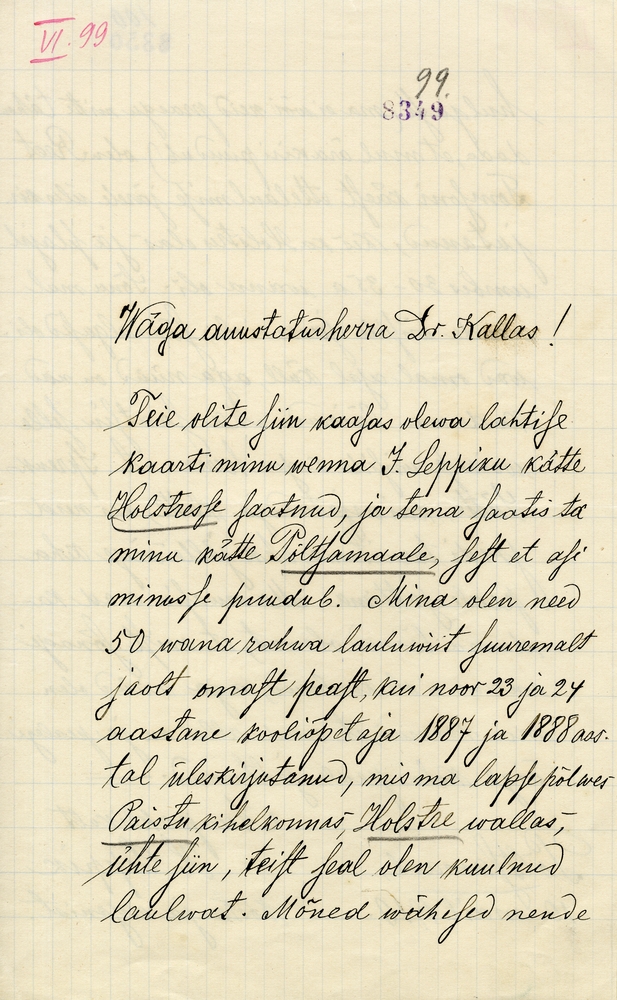 VI. 99
99.
8349
Wäga auustatud herra Dr. Kallas!
Teie olite siin kaasas olewa lahtise
kaarti minu wenna J. Leppiku kätte
Holstresse saatnud, ja tema saatis ta
minu kätte Põltsamaale, sest et asi
minusse puudub. Mina olen need
50 wana rahwa lauluwiit suuremalt
jaolt omast peast, kui noor 23 ja 24
aastane kooliõpetaja 1887 ja 1888 aas-
tal üleskirjutanud, mis ma lapsepõlwes
Paistu kihelkonnas, Holstre wallas,
ühte siin, teist seal olen kuulnud
laulwat. Mõned wähesed nende